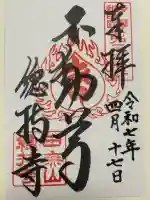 奉拝
令和七年
四月十七日
不動尊
總持寺